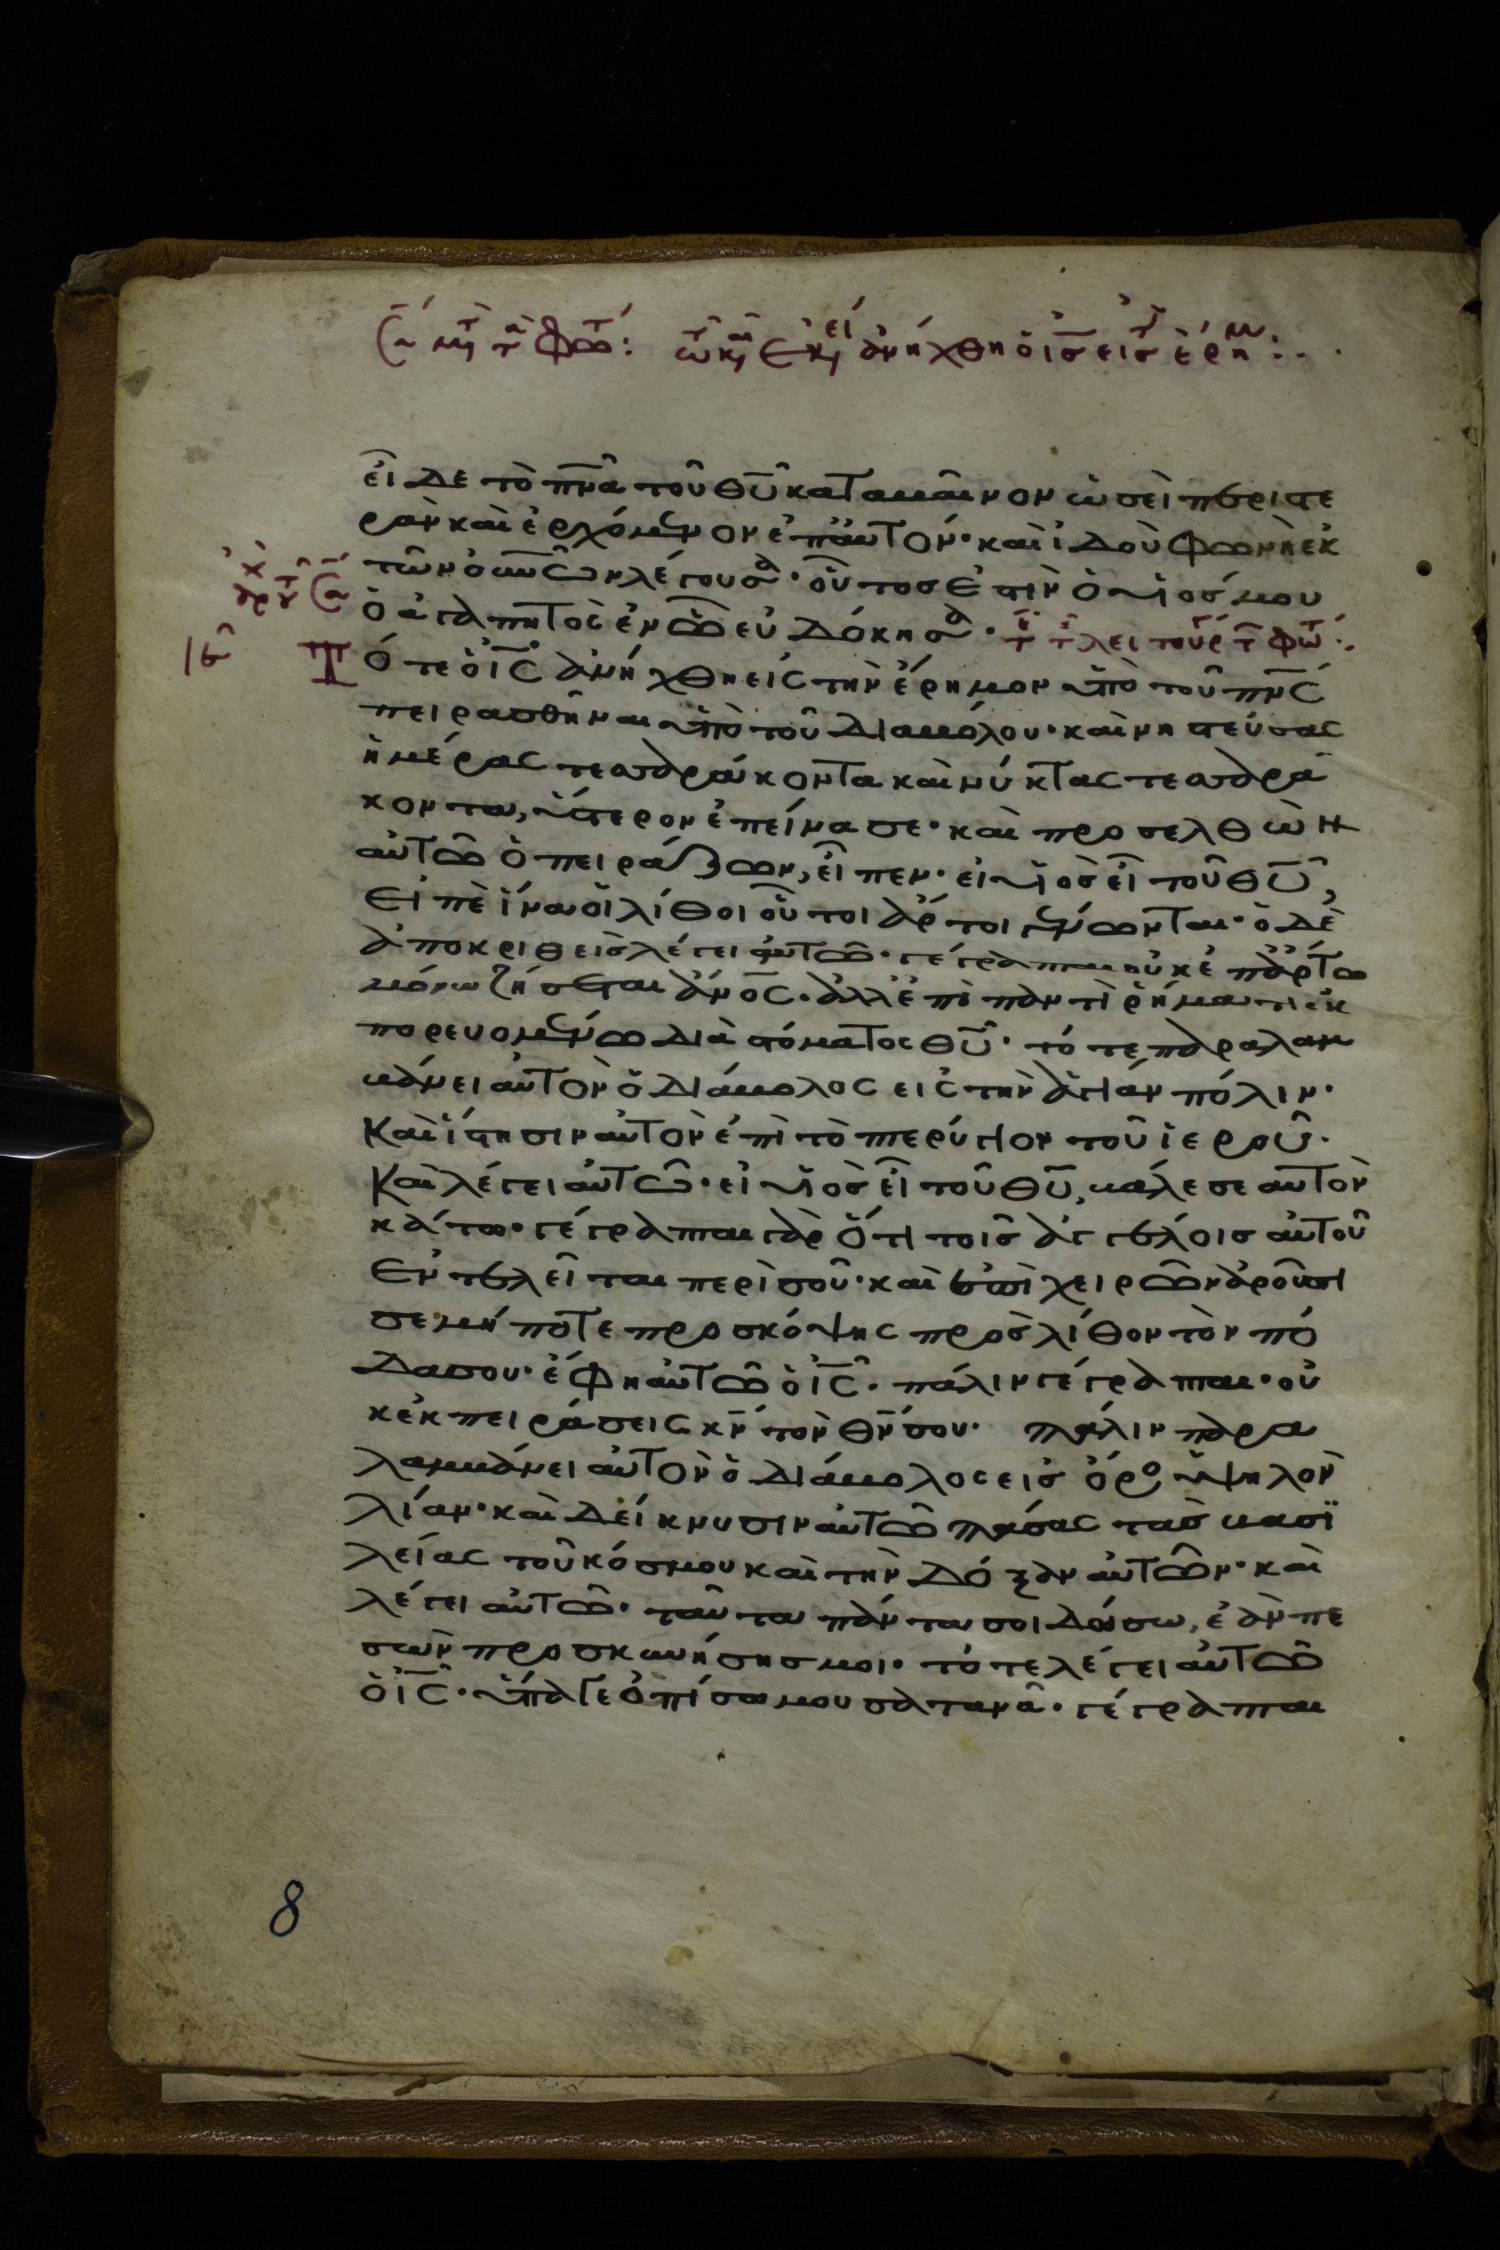 Σα μτ τα φωτ: τω κ εκει ανήχθη ὁ ισ εισ τ ερημ:.
εἶδε τὸ πνα τοῦ θυ καταβαῖνον ὡσεὶ περιστε
ρὰν καὶ ἐρχόμενον ἐπ αὐτόν· καὶ ἰδοὺ φωνὴ ἐκ
τῶν οὐνῶν λέγουσα· οὗτοσ ἐστὶν ὁ υἱοσ μου
ὁ ἀγαπητὸς ἐν ὧ εὐδόκησα·
Τότε ὁ ις ἀνήχθη εἰς τὴν ἔρημον ὑπὸ τοῦ πνς
πειρασθῆναι ὑπὸ τοῦ διαβόλου· καὶ νηστεύσας
ἡμέρας τεσσαράκοντα καὶ νύκτας τεσσαρά
κοντα, ὕστερον ἐπείνασε· καὶ προσελθὼν
αὐτῶ ὁ πειράζων, εἶπεν· εἰ υἱὸσ εἶ τοῦ θυ,
εἰπὲ ἵνα οἱ λίθοι οὗτοι ἄρτοι γένωνται· ὁ δὲ
ἀποκριθεὶσ λέγει αὐτῶ· γέγραπται οὐκ ἐπ ἄρτω
μόνω ζήσεται ἄνος· ἀλλ ἐπὶ παντὶ ῥήματι ἐκ
πορευομένω διὰ στόματος θυ· τότε παραλαμ
βάνει αὐτὸν ὁ διάβολος εἰς τὴν ἁγίαν πόλιν·
Καὶ ἵστησιν αὐτὸν ἐπὶ τὸ πτερύγιον τοῦ ἱεροῦ·
Καὶ λέγει αὐτῶ· εἰ υἱὸσ εἶ τοῦ θυ, βάλε σεαυτὸν
κάτω· γέγραπται γὰρ ὅτι τοῖσ ἀγγέλοισ αὐτοῦ
ἐντελεῖται περὶ σοῦ· καὶ ἐπὶ χειρῶν ἀροῦσι
σε μήποτε προσκόψης πρὸσ λίθον τὸν πό
δα σου· ἔφη αὐτῶ ὁ ις· πάλιν γέγραπται· οὐ
κ ἐκπειράσεις κν τὸν θν σου· πάλιν παρα
λαμβάνει αὐτὸν ὁ διάβολος εἰσ ὄρο ὑψηλὸν
λίαν· καὶ δείκνυσιν αὐτῶ πάσας τὰσ βασι
λείας τοῦ κόσμου καὶ τὴν δόξαν αὐτῶν· καὶ
λέγει αὐτῶ· ταῦτα πάντα σοι δώσω, ἐὰν πε
σὼν προσκυνήσησ μοι· τότε λέγει αὐτῶ
ὁ ις· ὕπαγε ὀπίσω μου σατανᾶ· γέγραπται
8